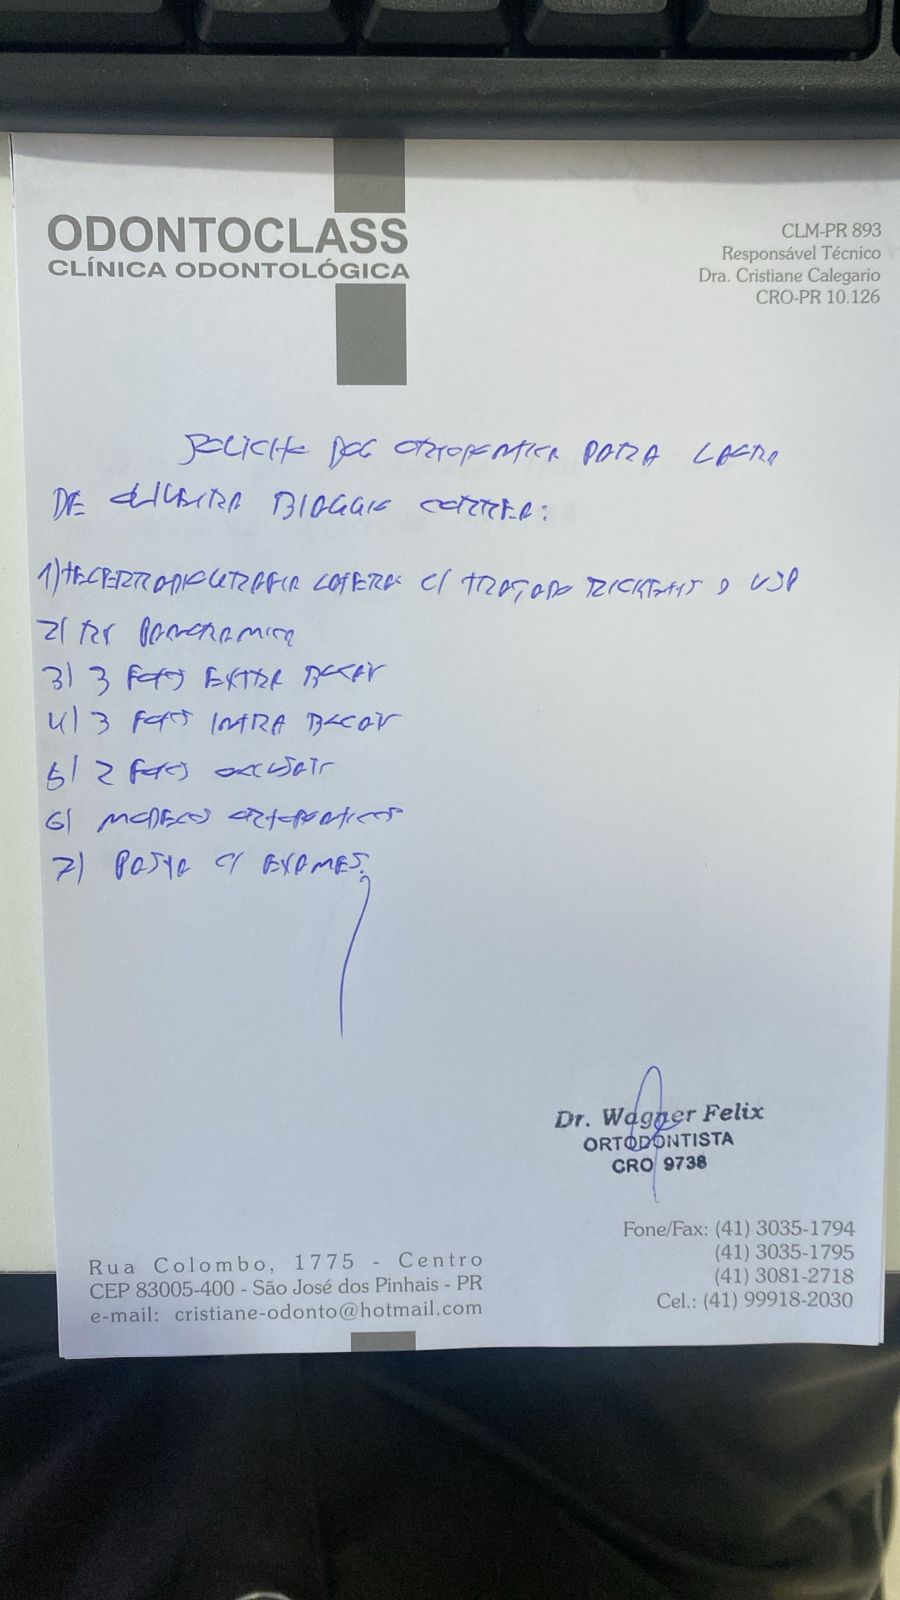 ODONTOCLASS
CLÍNICA ODONTOLÓGICA
CLM-PR 893
Responsável Técnico
Dra. Cristiane Calegario
CRO-PR 10.126
SOLICITO DOC ORTODONTICA PARA
DE OLIVEIRA BIAGGIO CORREA:
1) TELERRADIOGRAFIA LATERAL C/ TRAÇADO RICKETTS E USP
2) RX PANORAMICA
3) 3 FOTOS EXTRA BUCAL
4) 3 FOTOS INTRA BUCAL
5) 2 FOTOS OCLUSAIS
6) MODELOS ORTODONTICOS
7) PASTA C/ EXAMES.
Dr. Wagner Felix
ORTODONTISTA
CRO 9738
Rua Colombo, 1775 - Centro
CEP 83005-400 - São José dos Pinhais - PR
e-mail: cristiane-odonto@hotmail.com
Fone/Fax: (41) 3035-1794
(41) 3035-1795
(41) 3081-2718
Cel.: (41) 99918-2030